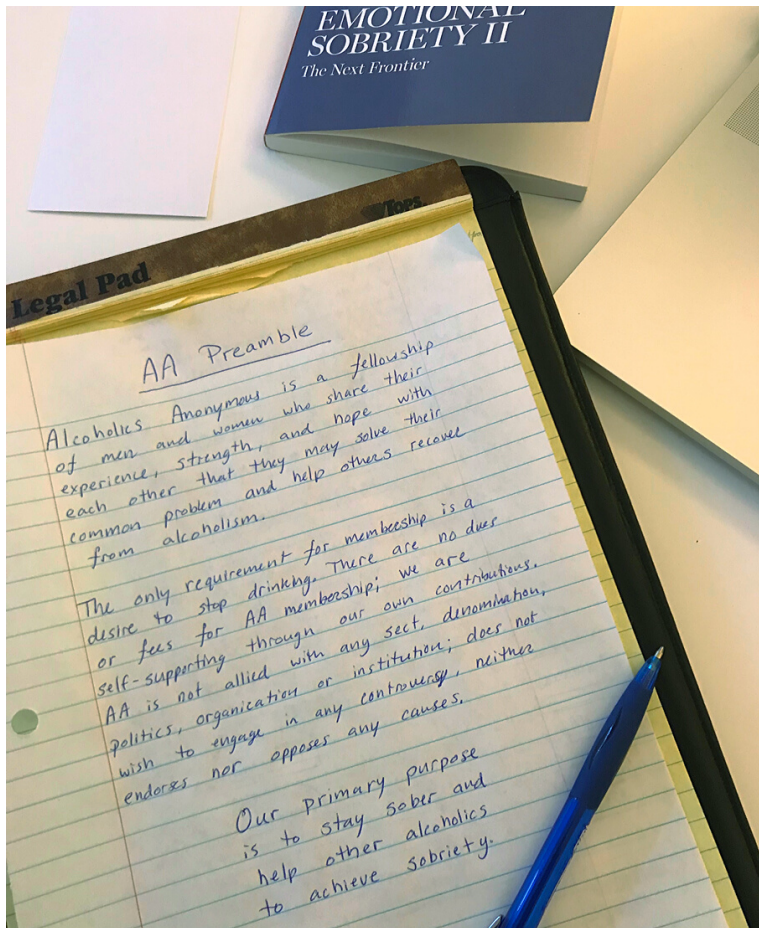 EMOTIONAL
SOBRIETY II
The Next Frontier
Tops
Legal Pad
AA Preamble
Alcoholics Anonymous is a fellowship
of men and women who share their
experience, strength, and hope with
each other that they may solve their
common problem and help others recover
from alcoholism.
The only requirement for membership is a
desire to stop drinking. There are no dues
or fees for AA membership; we are
self-supporting through our own contributions.
AA is not allied with any sect, denomination,
politics, organization or institution; does not
wish to engage in any controversy, neither
endorses nor opposes any causes.
Our primary purpose
is to stay sober and
help other alcoholics
to achieve sobriety.